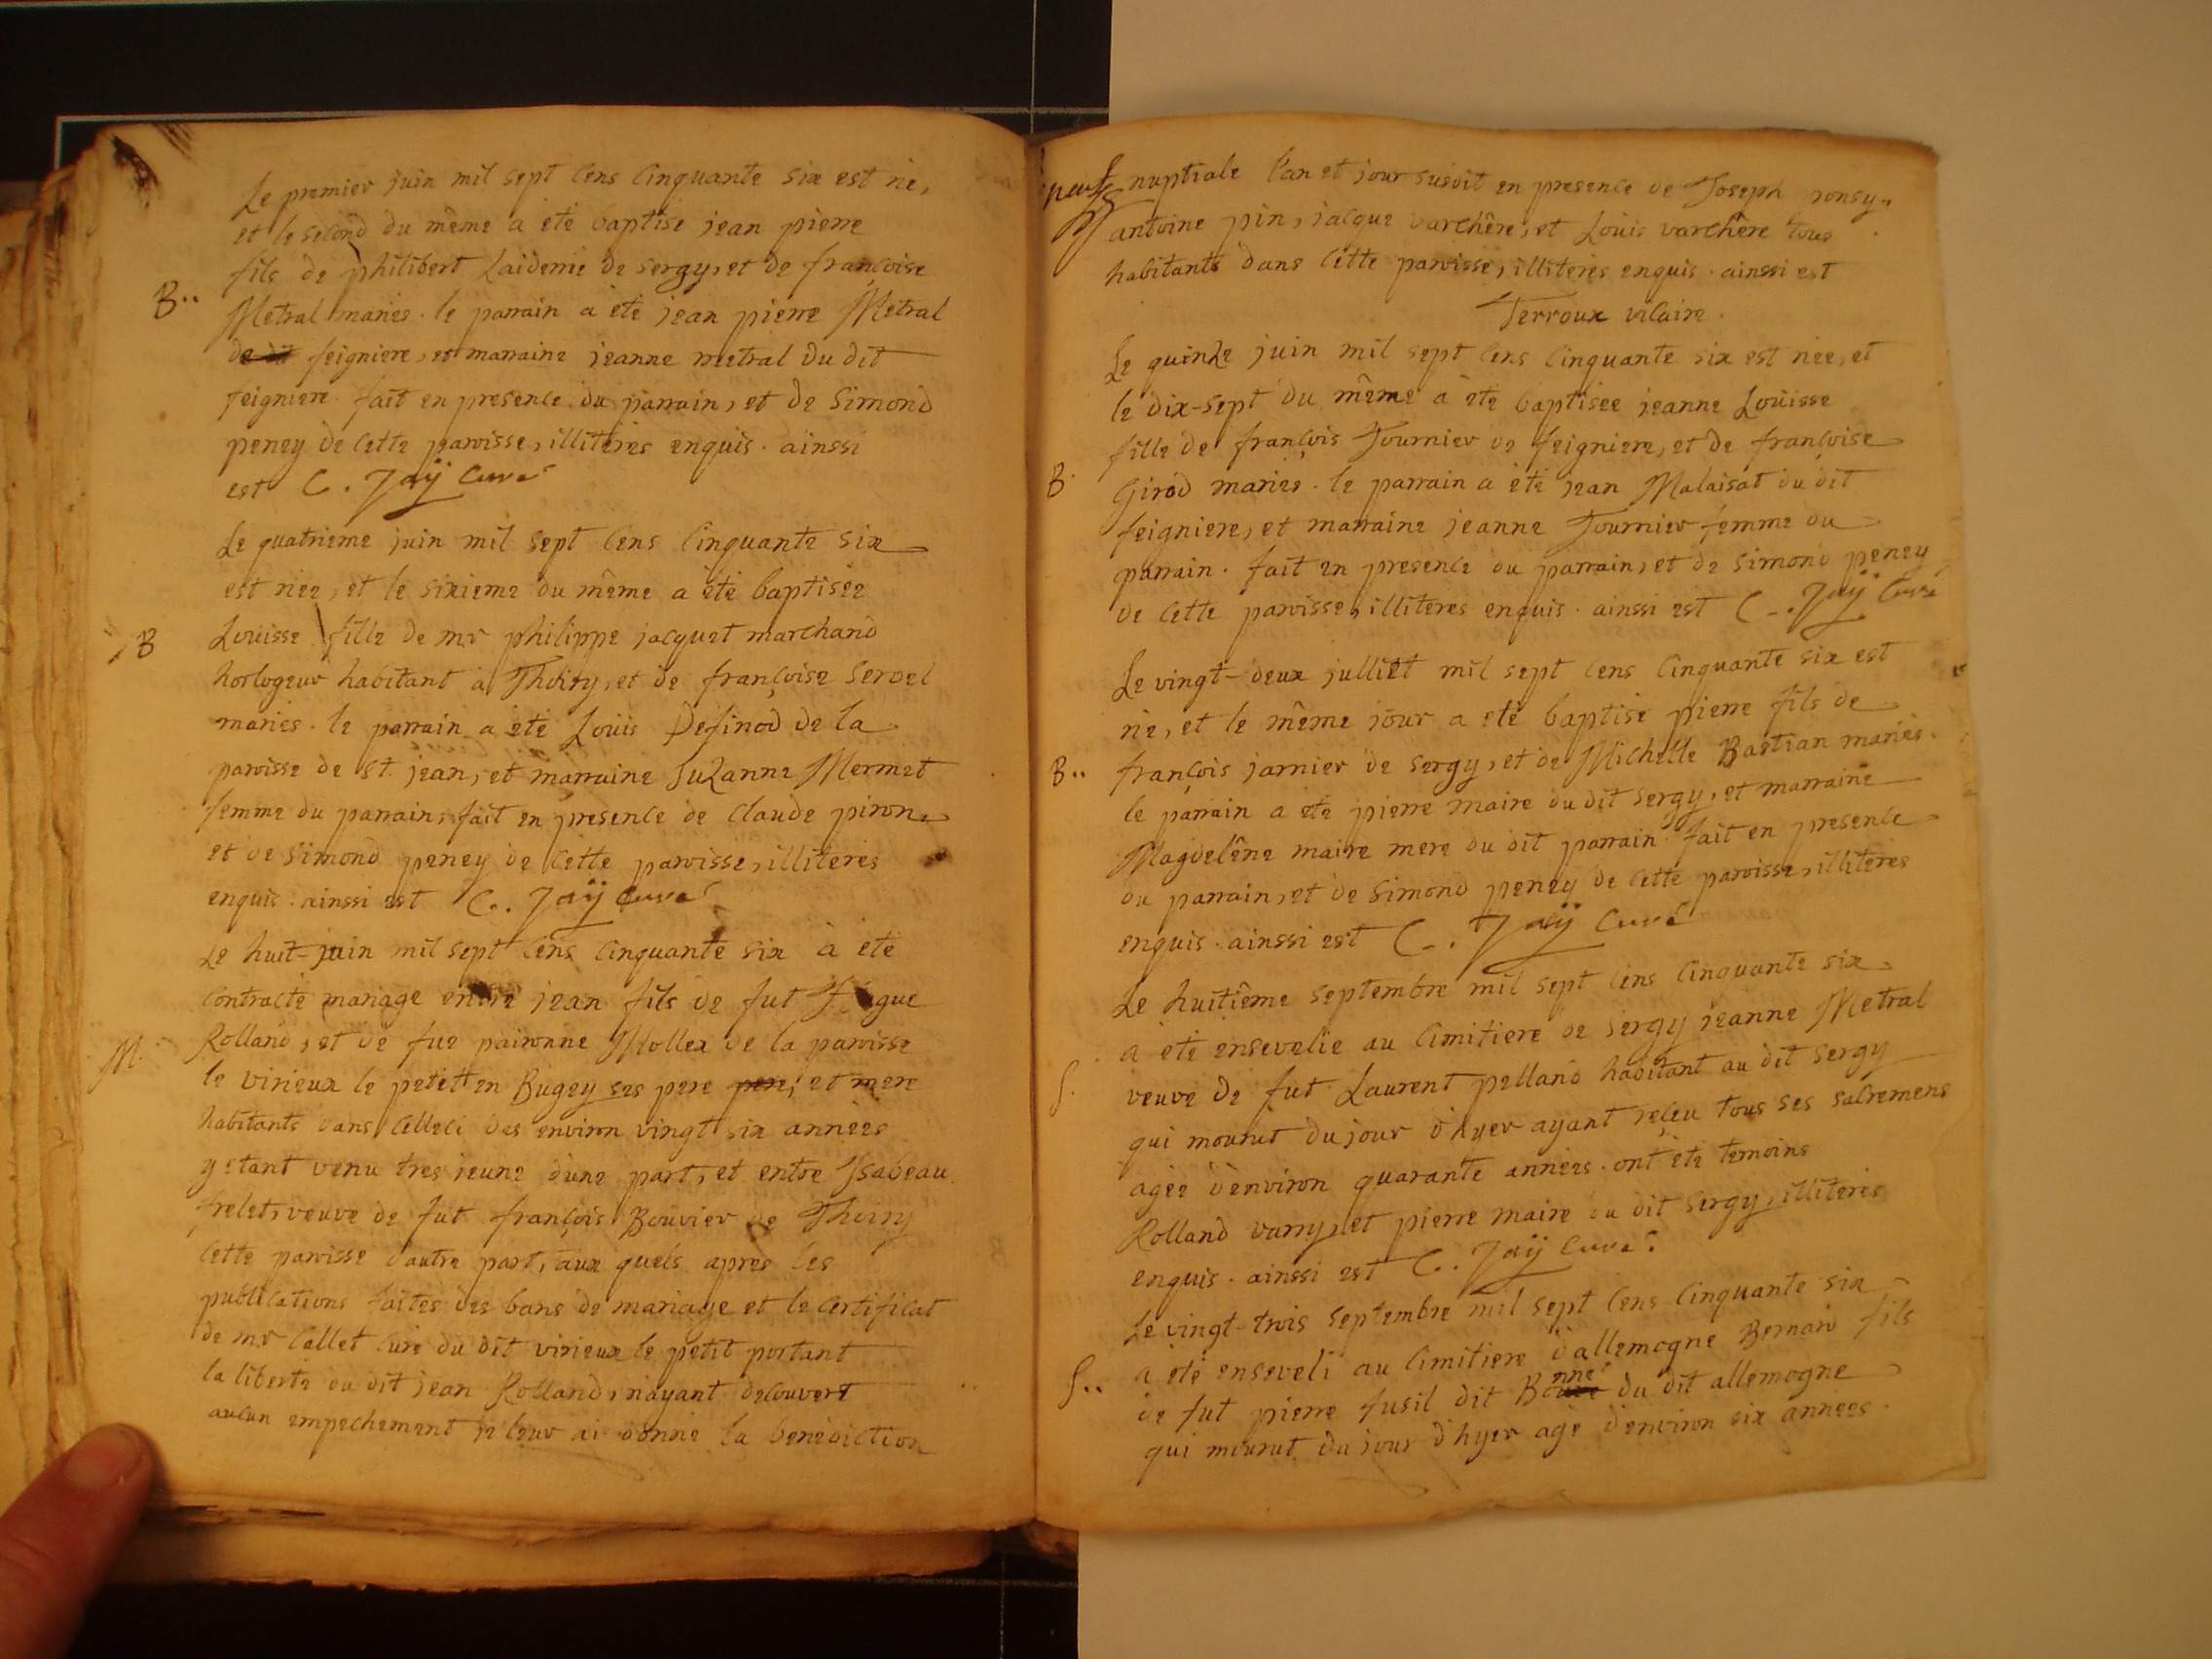 Le premier juin mil sept cens cinquante six est né,
et le second du même a été baptisé jean pierre
fils de philibert Laiderrie de sergy, et de françoise
B..
Metral mariés. le parrain a été jean pierre Metral
de dit feigniere, et marraine jeanne metral du dit
feigniere. fait en presence du parrain, et de Simond
peney de cette paroisse, illiterés enquis. ainssi
est C. Jaÿ Curé
Le quatrieme juin mil sept cens cinquante six
est née, et le sixieme du même a été baptisée
B
Louisse fille de mr philippe jacquet marchand
horlogeur habitant à Thoiry, et de françoise servel
mariés. le parrain a été Louis Definod de la
paroisse de st. jean, et marraine Suzanne Mermet
femme du parrain, fait en presence de claude piron
et de simond peney de cette paroisse, illiterés
enquis. ainssi est C.. Jaÿ Curé
Le huit-juin mil sept cens cinquante six à été
contracté mariage entre jean fils de fut
M.
Rolland, et de fue paironne Mollex de la paroisse
le virieux le petit en Bugey ses pere pere, et mere
habitants dans celleci des environ vingt six années
y etant venu tres jeune dune part, et entre Jsabeau
frelet, veuve de fut françois Bouvier de Thoiry
cette paroisse d'autre part, aux quels apres les
publications faites des bans de mariage et le certificat
de mr Callet curé du dit virieux le petit portant
la liberté du dit jean Rolland, n'ayant découvert
aucun empechement je leur ai donné la benediction
nuptiale l'an et jour susdit en presence de Joseph ponsy..
antoine pin, jacque varchêre, et Louis varchêre tous
habitants dans cette paroisse, illiterés enquis. ainssi est
Terroux vicaire.
Le quinze juin mil sept cens cinquante six est née, et
le dix-sept du même a été baptisée jeanne Loüisse
fille de françois Tournier de feigniere, et de françoise
B.
Girod mariés. le parrain a été jean Malaisat du dit
feigniere, et marraine jeanne Tournier femme du
parrain. fait en presence du parrain, et de simond peney
de cette paroisse, illiterés enquis. ainssi est C.. Jaÿ Curé
Le vingt-deux julliet mil sept cens cinquante six est
né, et le même jour a été baptisé pierre fils de
B..
françois jarnier de sergy, et de Michelle Bastian mariés.
le parrain a été pierre maire du dit sergy, et marraine
Magdelêne maire mere du dit parrain fait en presence
du parrain, et de simond peney de cette paroisse, illiterés
enquis. ainssi est C.. Jaÿ Curé
Le huitiême septembre mil sept cens cinquante six
a été ensevelie au cimitiere de sergy jeanne Metral
S.
veuve de fut Laurent pelland habitant au dit sergy
qui mourut du jour d'hyer ayant reçeu tous ses sacremens
agée d'environ quarante années. ont été temoins
Rolland varry, et pierre maire du dit sergy, illiterés
enquis. ainssi est C.. Jaÿ Curé.
Le vingt-trois septembre mil sept cens cinquante six
a été enseveli au cimitiere d'allemogne Bernard fils
S..
de fut pierre fusil dit du dit allemogne
qui mourut du jour d'hyer agé d'environ six années.